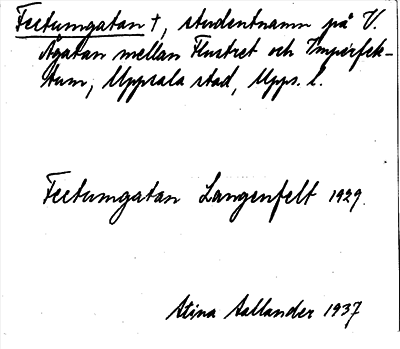 Fectumgatan †, studentnamn på V.
Ågatan mellan Flustret och Imperfek-
tum, Uppsala stad, Upps. l.
Fectumgatan Langenfelt 1929.
Stina Aallander 1937